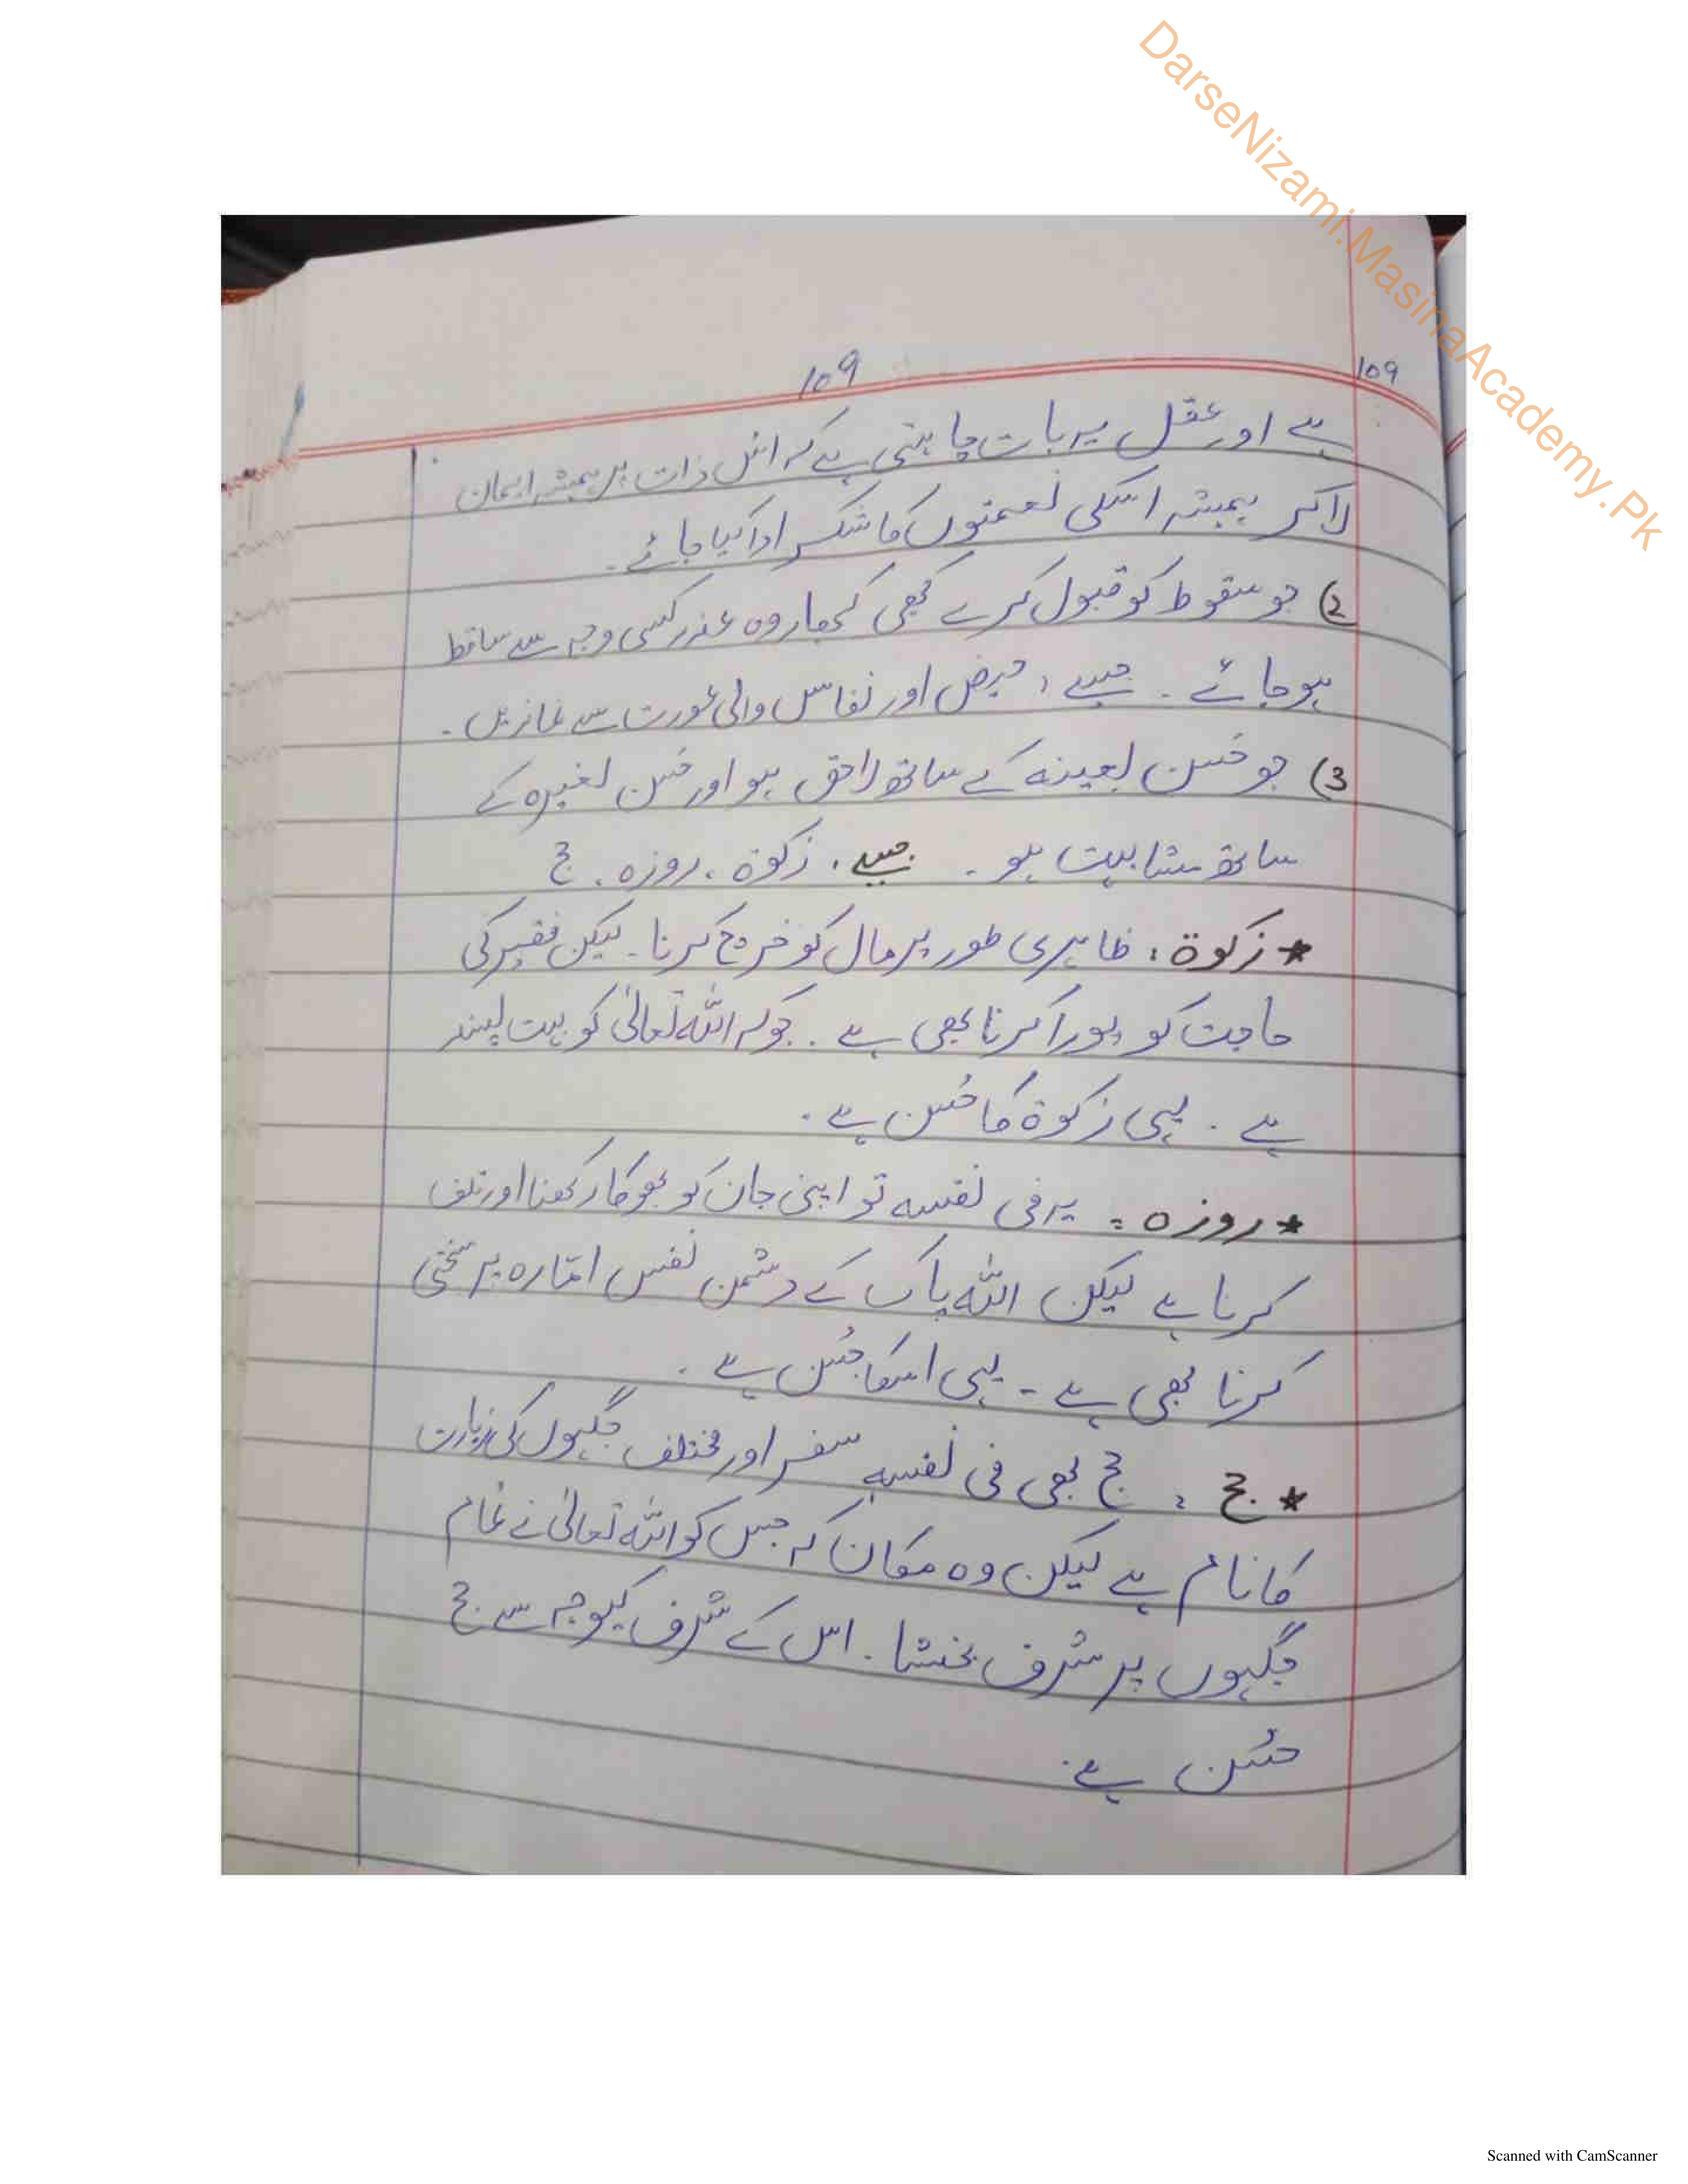 DarseNizami.MasinaAcademy.Pk
109
109
ہے اور عقل یہ بات چاہتی ہے کہ اس ذات پر ہمیشہ ایمان
لا کر ہمیشہ اسکی نعمتوں کا شکر ادا کیا جائے۔
2) جو سقوط کو قبول کرے کبھی کبھار وہ عذر کسی وجہ سے ساقط
ہو جائے ۔ جیسے ، حیض اور نفاس والی عورت سے نمازیں ۔
3) جو حُسن لعینہ کے ساتھ لاحق ہو اور حُسن لغیرہ کے
ساتھ مشابہت ہو ۔ جیسے ، زکوۃ ، روزہ ، حج
* زکوۃ : ظاہری طور پر مال کو خرچ کرنا ۔ لیکن فقیر کی
حاجت کو پورا کرنا بھی ہے ۔ جو کہ اللہ تعالیٰ کو بہت پسند
ہے ۔ یہی زکوۃ کا حُسن ہے ۔
* روزہ : یہ فی نفسہ تو اپنی جان کو بھوکا رکھنا اور تلف
کرنا ہے لیکن اللہ پاک کے دشمن نفس امّارہ پر سختی
کرنا بھی ہے ۔ یہی اسکا حُسن ہے ۔
* حج : حج بھی فی نفسہ سفر اور مختلف جگہوں کی زیارت
کا نام ہے لیکن وہ مکان کہ جس کو اللہ تعالیٰ نے تمام
جگہوں پر شرف بخشا ۔ اس کے شرف کیوجہ سے حج
حُسن ہے ۔
Scanned with CamScanner